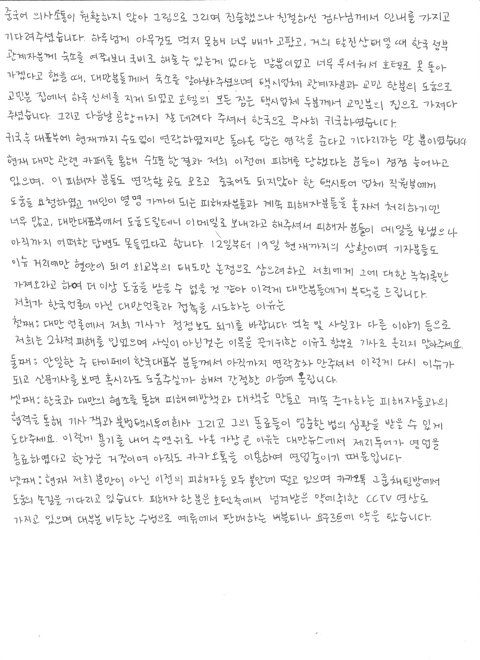 중국어 의사소통이 원활하지 않아 그림으로 그리며 진술했으나 친절하신 검사님께서 인내를 가지고
기다려주셨습니다. 하루넘게 아무것도 먹지 못해 너무 배가 고팠고, 거의 탈진상태일 때 한국 정부
관계자분께 숙소를 여쭤보니 국비로 해줄수 있는게 없다는 말뿐이였고 너무 무서워서 호텔로 못 돌아
가겠다고 했을 때, 대만분들께서 숙소를 알아봐주셨으며 택시업체 관계자분과 교민 한분의 도움으로
교민분 집에서 하루 신세를 지게 되었고 호텔의 모든 짐은 택시업체 두분께서 교민분의 집으로 가져다
주셨습니다. 그리고 다음날 공항까지 잘 데려다 주셔서 한국으로 무사히 귀국하였습니다
귀국 후 대표부에 현재까지 수도없이 연락하였지만 돌아온 답은 연락을 준다고 기다리라는 말 뿐이였습니다
현재 대만 관련 카페를 통해 수소문한 결과 저희 이전에 피해를 당했다는 분들이 점점 늘어나고
있으며, 이 피해자 분들도 연락할 곳도 모르고 중국어도 되지않아 한 택시투어 업체 직원분에게
도움을 요청하였고 개인이 열명 가까이 되는 피해자분들과 계속 피해자분들을 혼자서 처리하기엔
너무 많고, 대만대표부에서 도움드릴테니 이메일로 보내라고 해주셔서 피해자 분들이 메일을 보냈으나
아직까지 어떠한 답변도 못들었다고 합니다. 12일부터 19일 현재까지의 상황이며 기자분들도
이슈 거리에만 혈안이 되어 외교부의 태도만 논점으로 삼으려하고 저희에게 그에 대한 녹취록만
가져오라고 하여 더이상 도움을 받을 수 없을 것 같아 이렇게 대만분들에게 부탁을 드립니다.
저희가 한국언론이 아닌 대만언론과 접촉을 시도하는 이유는
첫째: 대만 언론에서 저희 기사가 정정보도 되기를 바랍니다. 약속 및 사실과 다른 이야기 등으로
저희는 2차적 피해를 입었으며 사실이 아닌것은 이목을 끌기위한 이유로 함부로 기사로 올리지 말아주세요.
둘째: 안일한 주 타이페이 한국대표부 분들께서 아직까지 연락조차 안주셔서 이렇게 다시 이슈가
되고 신문기사를 보면 혹시라도 도움주실까 해서 간절한 마음에 올립니다.
셋째: 한국과 대만의 협조를 통해 피해예방책과 대책을 만들고 계속 증가하는 피해자들과의
협력을 통해 기사 잭과 불법택시투어회사 그리고 그의 동료들이 엄중한 법의 심판을 받을 수 있게
도와주세요. 이렇게 용기를 내어 수면위로 나온 가장 큰 이유는 대만뉴스에서 제리투어가 영업을
종료하였다고 한것은 거짓이며 아직도 카카오톡을 이용하여 영업중이기 때문입니다.
넷째: 현재 저희 뿐만이 아닌 이전의 피해자들 모두 불안에 떨고 있으며 카카오톡 그룹채팅방에서
도움의 손길을 기다리고 있습니다. 피해자 한분은 호텔측에서 넘겨받은 약에취한 CCTV 영상도
가지고 있으며 대부분 비슷한 수법으로 예류에서 판매하는 버블티나 요구르트에 약을 탔습니다.